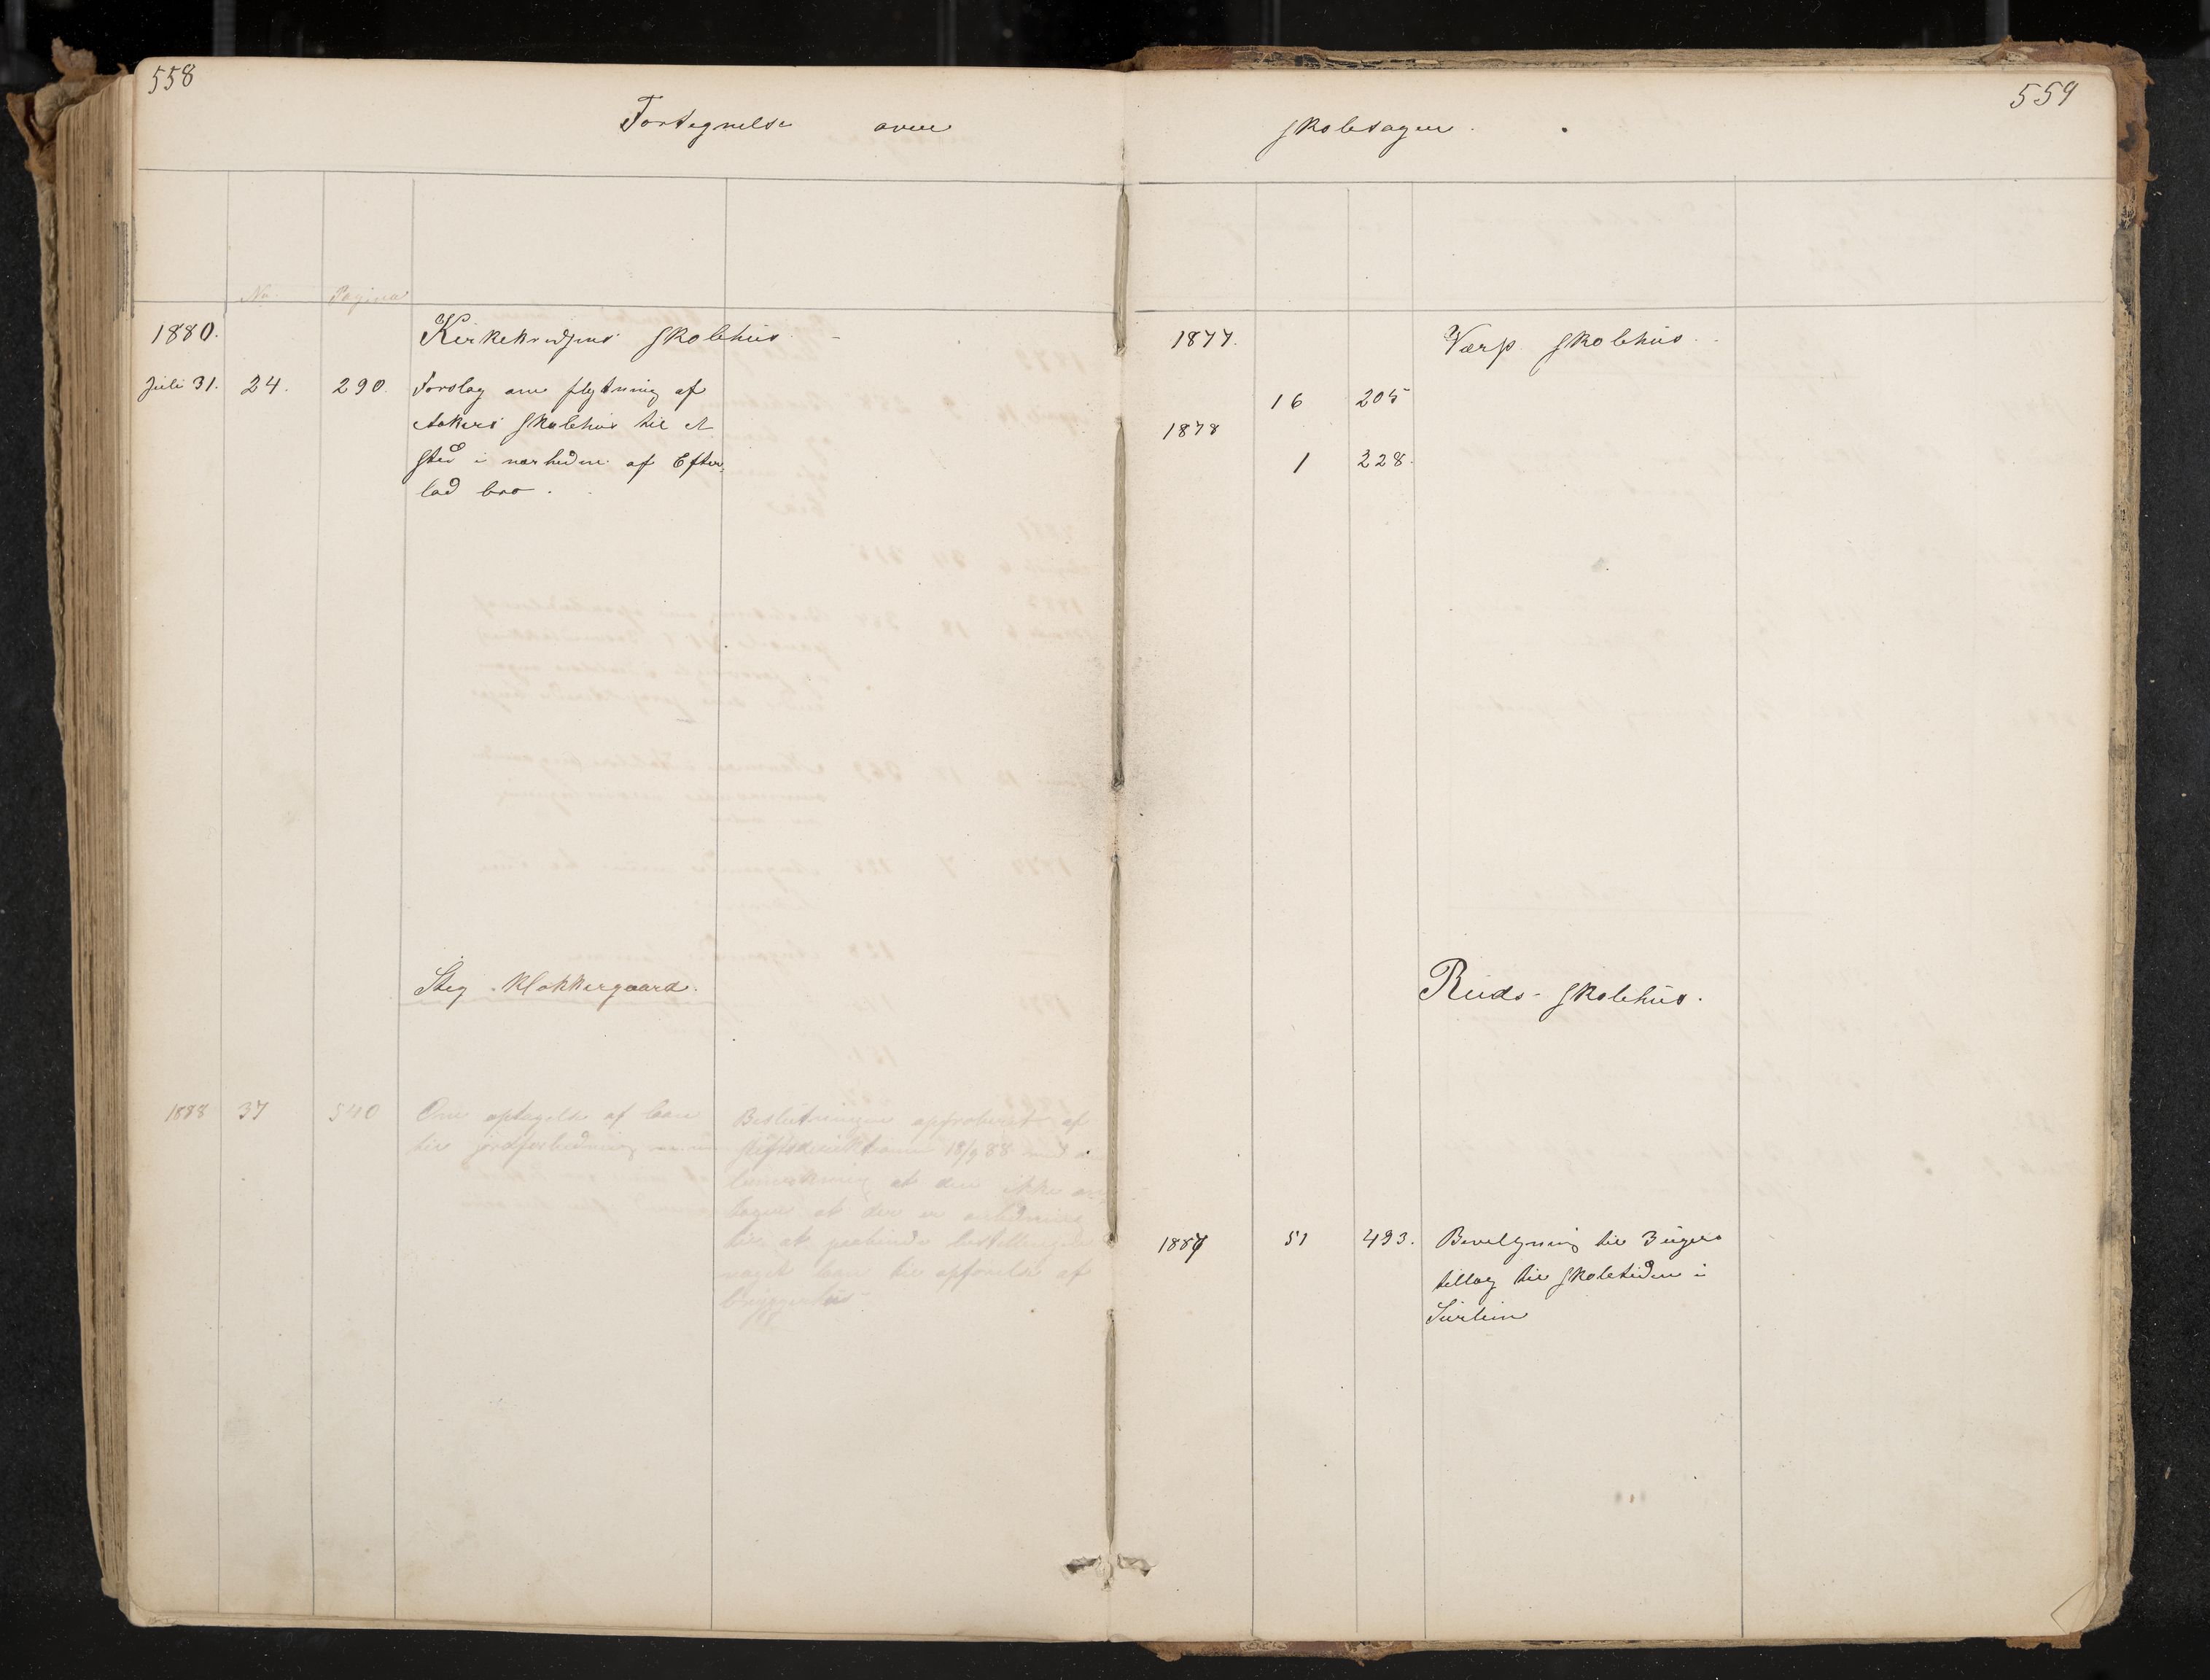 558
Fortegnelse over
No. Pagina
1880. Kirkekredsens skolehus
Juli 31. 24. 290. Forslag om flytning af
Aakers skolehus til et
sted i nærheden af Efter-
lad bro.
Steg Klokkergaard.
1888 37 540 Om optagelse af laan
til jordforbedring
Beslutningen approberet af
stiftsdirektionen 18/9 88 med
bemerkning at den ikke an-
tager at der er anledning
til at paabinde bestillingen
noget laan til opførelse af
bryggerhus
559
skolesager.
1877. Værp skolehus.
16 205
1878
1 228.
Ruds skolehus.
1887 51 493. Bevilgning til 3 ugers
tillæg til skoletiden i